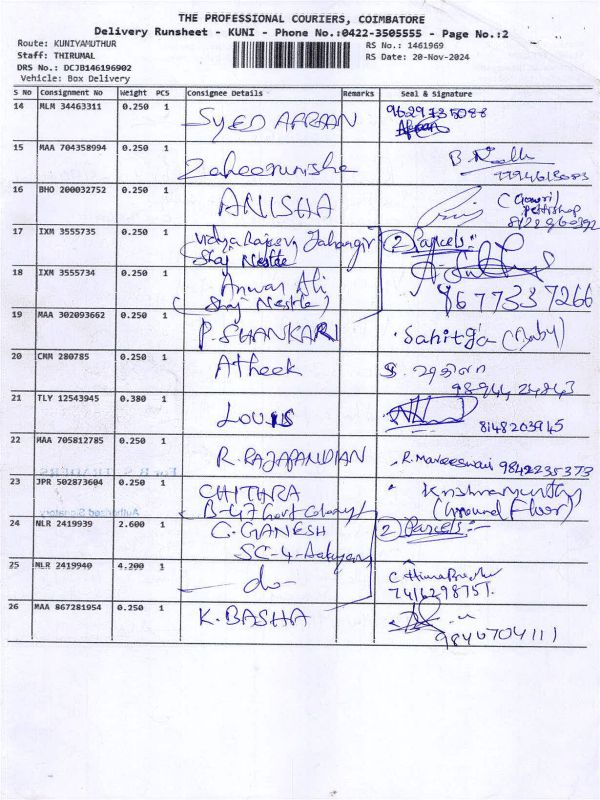 THE PROFESSIONAL COURIERS, COIMBATORE
Delivery Runsheet - KUNI - Phone No.:0422-3505555 - Page No.:2
Route: KUNIYAMUTHUR
RS No.: 1461969
Staff: THIRUMAL
RS Date: 20-Nov-2024
DRS No.: DCJB146196902
Vehicle: Box Delivery
S No Consignment No Weight PCS Consignee Details Remarks Seal & Signature
14 MLM 34463311 0.250 1 SYED AFRAAN 9629735088
15 MAA 704358994 0.250 1 Zaheerunisha
7794613083
16 BHO 200032752 0.250 1 ANISHA (Gowri)
Pettishop
17 IXM 3555735 0.250 1 Vidya Rajeev Jahangir 2 Parcels:-
Shaj Nestle
18 IXM 3555734 0.250 1 Anwar Ali
(Shaj Nestle) 8677337266
19 MAA 302093662 0.250 1 P. SHANKARI Sahitya (Baby)
20 CMM 280785 0.250 1 Atheek
98944 24243
21 TLY 12543945 0.380 1 LOUIS
8148203945
22 MAA 705812785 0.250 1 R. RAJAPANDIAN R. Mareeswari 9842235373
23 JPR 502873604 0.250 1 CHITHRA Krishnamurthy
B-47 Govt Colony (Ground Floor)
Authorised Signatory
24 NLR 2419939 2.600 1 G. GANESH 2 Parcels:-
SC-4-
25 NLR 2419940 4.200 1 -do-
7416298751.
26 MAA 867281954 0.250 1 K. BASHA
9840704111